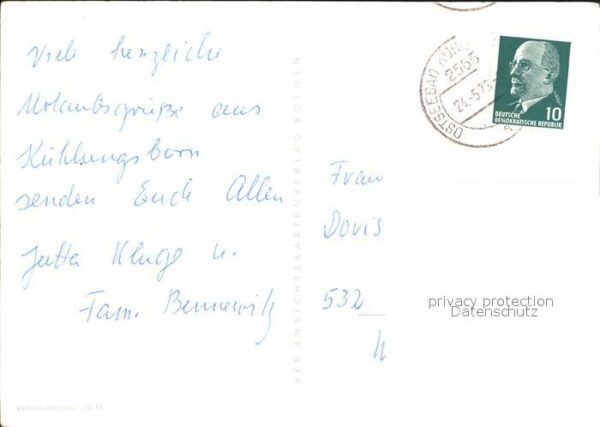 Viele herzliche
Urlaubsgrüße aus
Kühlungsborn
senden Euch Allen
Jutta Kluge u.
Fam. Bennewitz
VEB ANSICHTSKARTENVERLAG KÖTHEN
OSTSEEBAD KÜHL
2565
24.-5.73
DEUTSCHE
DEMOKRATISCHE REPUBLIK
10
Frau
Doris
532
privacy protection
Datenschutz